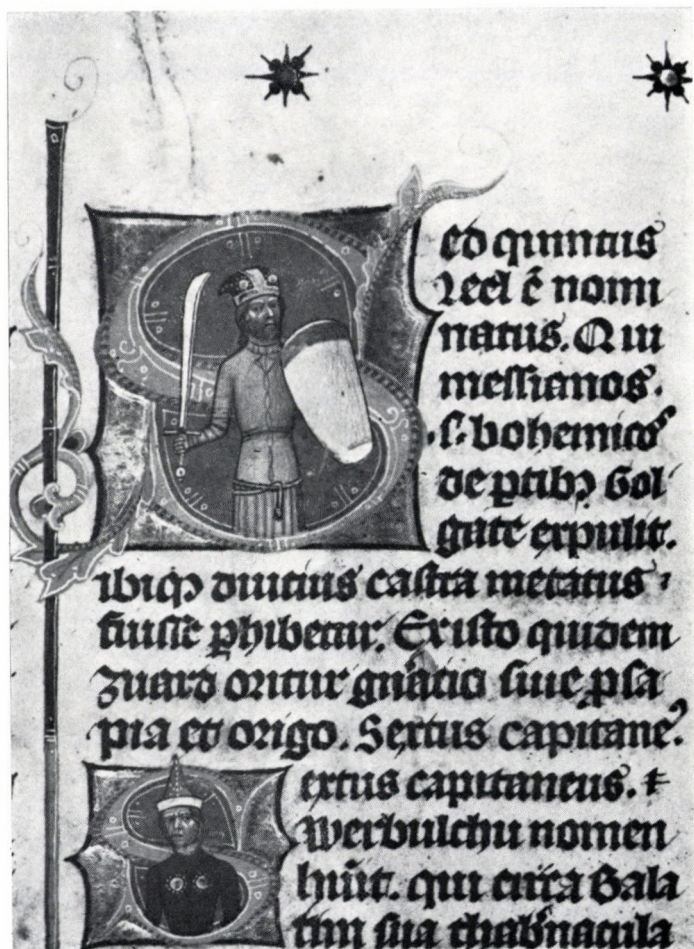 ed quintus
Leel ē nomi
natus. Qui
messianos.
.s. bohemicos
de ꝑtibꝫ Gol
gate expulit.
ibiqꝫ diutius castra metatus
fuisse ꝑhibetur. Ex isto quidem
zuard oritur gn̄atio siue ꝓsa
pia et origo. Sextus capitaneꝰ
extus capitaneus.
Werbulchu nomen
hūit. qui circa Bala
tim sua thab̄nacula